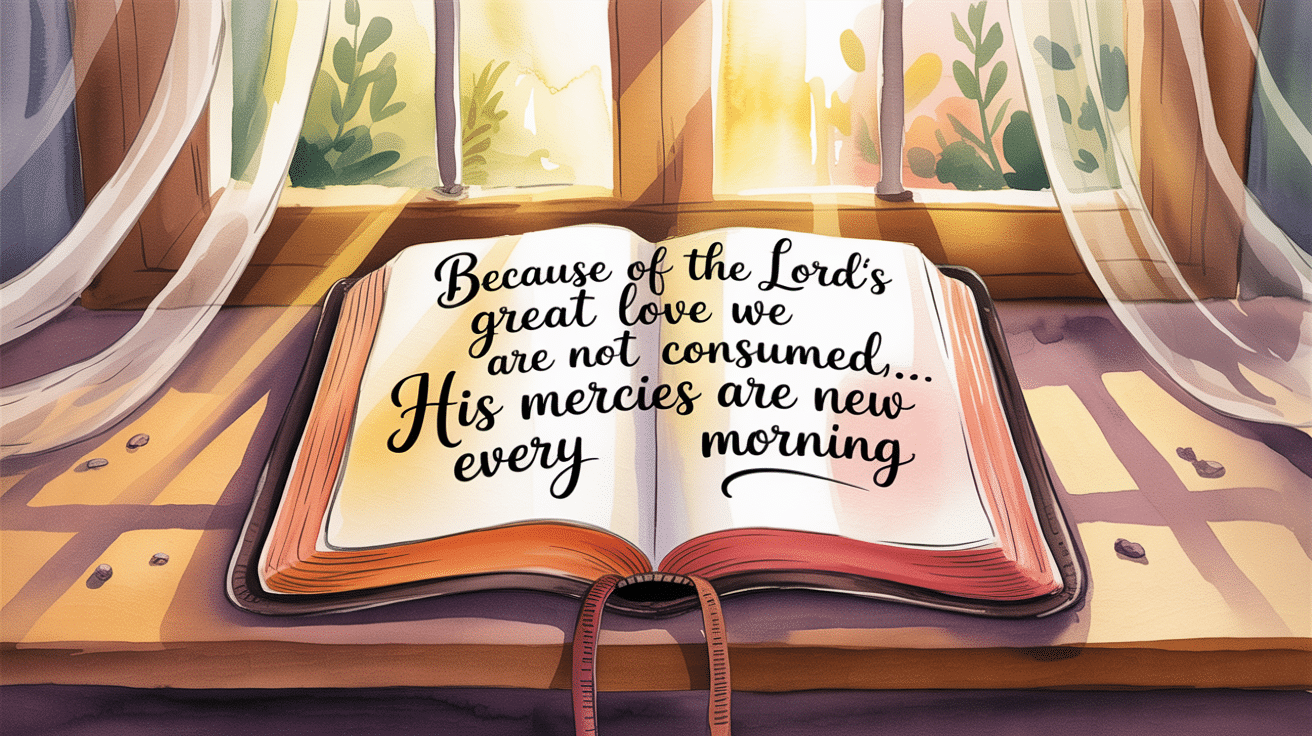 Because of the Lord's
great love we
are not consumed,...
His mercies are new
every morning